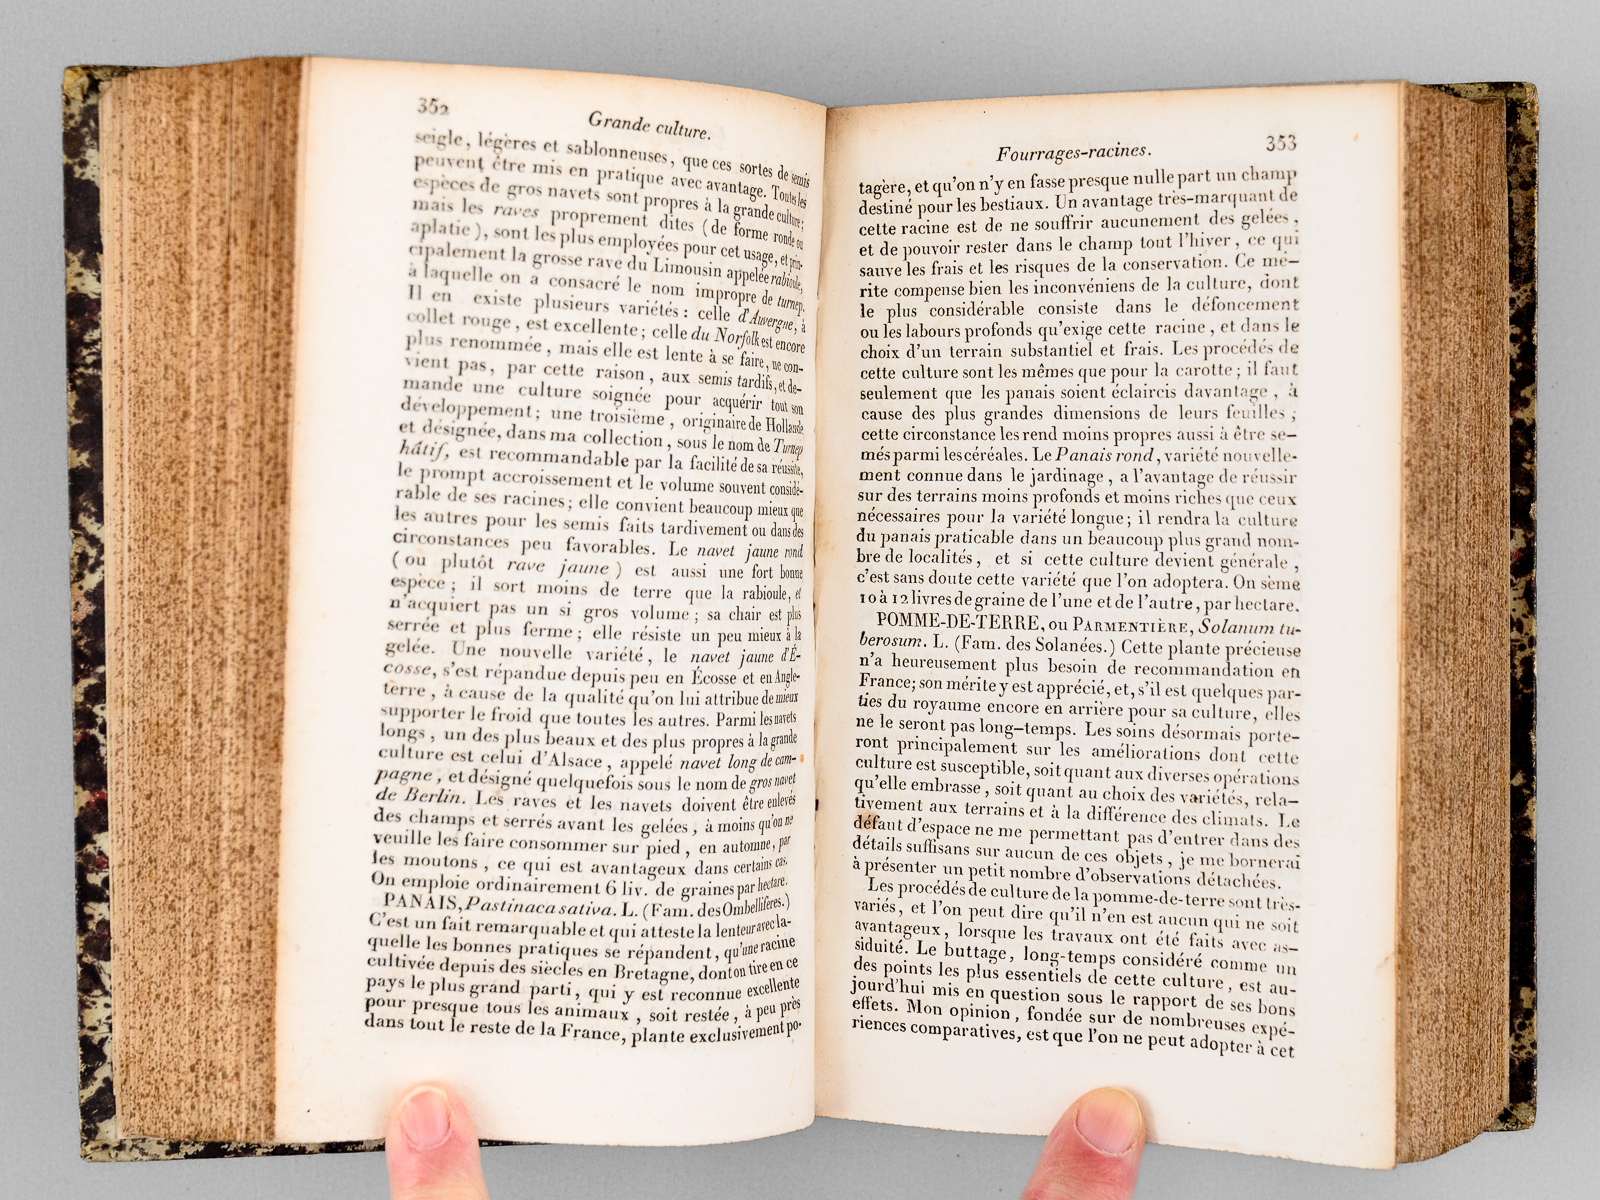 352
Grande culture.
seigle, légères et sablonneuses, que ces sortes de semis
peuvent être mis en pratique avec avantage. Toutes les
espèces de gros navets sont propres à la grande culture;
mais les raves proprement dites (de forme ronde ou
aplatie), sont les plus employées pour cet usage, et prin-
cipalement la grosse rave du Limousin appelée rabioule,
à laquelle on a consacré le nom impropre de turnep.
Il en existe plusieurs variétés: celle d'Auvergne, à
collet rouge, est excellente; celle du Norfolk est encore
plus renommée, mais elle est lente à se faire, ne con-
vient pas, par cette raison, aux semis tardifs, et de-
mande une culture soignée pour acquérir tout son
développement; une troisième, originaire de Hollande
et désignée, dans ma collection, sous le nom de Turnep
hâtif, est recommandable par la facilité de sa réussite,
le prompt accroissement et le volume souvent considé-
rable de ses racines; elle convient beaucoup mieux que
les autres pour les semis faits tardivement ou dans des
circonstances peu favorables. Le navet jaune rond
(ou plutôt rave jaune) est aussi une fort bonne
espèce; il sort moins de terre que la rabioule, et
n'acquiert pas un si gros volume; sa chair est plus
serrée et plus ferme; elle résiste un peu mieux à la
gelée. Une nouvelle variété, le navet jaune d'É-
cosse, s'est répandue depuis peu en Écosse et en Angle-
terre, à cause de la qualité qu'on lui attribue de mieux
supporter le froid que toutes les autres. Parmi les navets
longs, un des plus beaux et des plus propres à la grande
culture est celui d'Alsace, appelé navet long de cam-
pagne, et désigné quelquefois sous le nom de gros navet
de Berlin. Les raves et les navets doivent être enlevés
des champs et serrés avant les gelées, à moins qu'on ne
veuille les faire consommer sur pied, en automne, par
les moutons, ce qui est avantageux dans certains cas.
On emploie ordinairement 6 liv. de graines par hectare.
PANAIS, Pastinaca sativa. L. (Fam. des Ombellifères.)
C'est un fait remarquable et qui atteste la lenteur avec la-
quelle les bonnes pratiques se répandent, qu'une racine
cultivée depuis des siècles en Bretagne, dont on tire en ce
pays le plus grand parti, qui y est reconnue excellente
pour presque tous les animaux, soit restée, à peu près
dans tout le reste de la France, plante exclusivement po-
Fourrages-racines.
353
tagère, et qu'on n'y en fasse presque nulle part un champ
destiné pour les bestiaux. Un avantage très-marquant de
cette racine est de ne souffrir aucunement des gelées,
et de pouvoir rester dans le champ tout l'hiver, ce qui
sauve les frais et les risques de la conservation. Ce mé-
rite compense bien les inconvéniens de la culture, dont
le plus considérable consiste dans le défoncement
ou les labours profonds qu'exige cette racine, et dans le
choix d'un terrain substantiel et frais. Les procédés de
cette culture sont les mêmes que pour la carotte; il faut
seulement que les panais soient éclaircis davantage, à
cause des plus grandes dimensions de leurs feuilles;
cette circonstance les rend moins propres aussi à être se-
més parmi les céréales. Le Panais rond, variété nouvelle-
ment connue dans le jardinage, a l'avantage de réussir
sur des terrains moins profonds et moins riches que ceux
nécessaires pour la variété longue; il rendra la culture
du panais praticable dans un beaucoup plus grand nom-
bre de localités, et si cette culture devient générale,
c'est sans doute cette variété que l'on adoptera. On sème
10 à 12 livres de graine de l'une et de l'autre, par hectare.
POMME-DE-TERRE, ou PARMENTIÈRE, Solanum tu-
berosum. L. (Fam. des Solanées.) Cette plante précieuse
n'a heureusement plus besoin de recommandation en
France; son mérite y est apprécié, et, s'il est quelques par-
ties du royaume encore en arrière pour sa culture, elles
ne le seront pas long-temps. Les soins désormais porte-
ront principalement sur les améliorations dont cette
culture est susceptible, soit quant aux diverses opérations
qu'elle embrasse, soit quant au choix des variétés, rela-
tivement aux terrains et à la différence des climats. Le
défaut d'espace ne me permettant pas d'entrer dans des
détails suffisans sur aucun de ces objets, je me bornerai
à présenter un petit nombre d'observations détachées.
Les procédés de culture de la pomme-de-terre sont très-
variés, et l'on peut dire qu'il n'en est aucun qui ne soit
avantageux, lorsque les travaux ont été faits avec as-
siduité. Le buttage, long-temps considéré comme un
des points les plus essentiels de cette culture, est au-
jourd'hui mis en question sous le rapport de ses bons
effets. Mon opinion, fondée sur de nombreuses expé-
riences comparatives, est que l'on ne peut adopter à cet